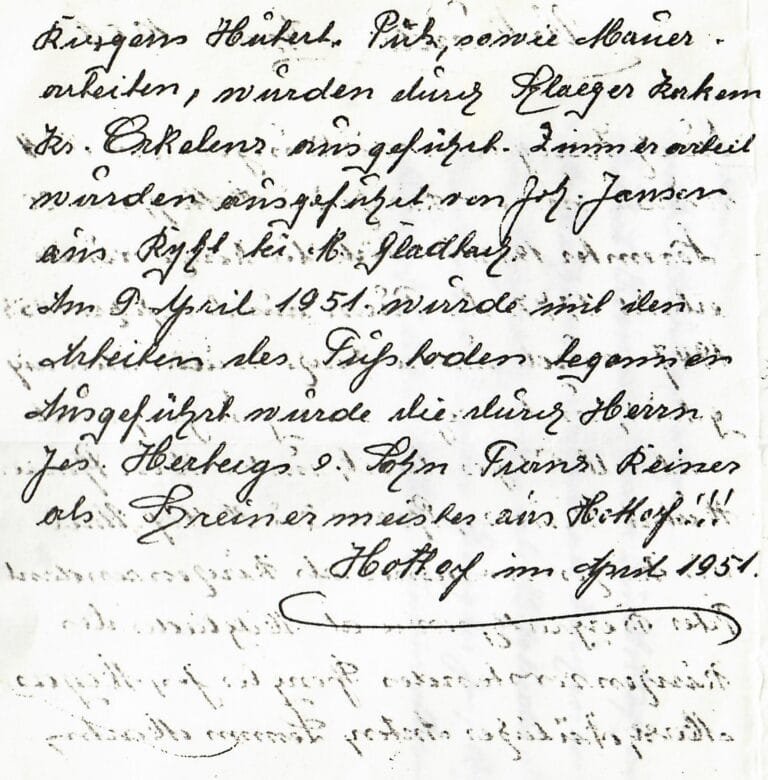 Hubert. Pütz, sowie Mauer-
arbeiten, wurden durch Kerkem
Kr. Erkelenz ausgeführt. Zimmerarbeit
wurden ausgeführt von Joh. Jansen
aus bei M Gladbach.
Am 9 April 1951. wurde mit den
Arbeiten des Fußboden begonnen
Ausgeführt wurde die durch Herrn
Jos. Herbergs &. Sohn Franz Reiner
als Schreinermeister aus Hottorf!!!
Hottorf im April 1951.